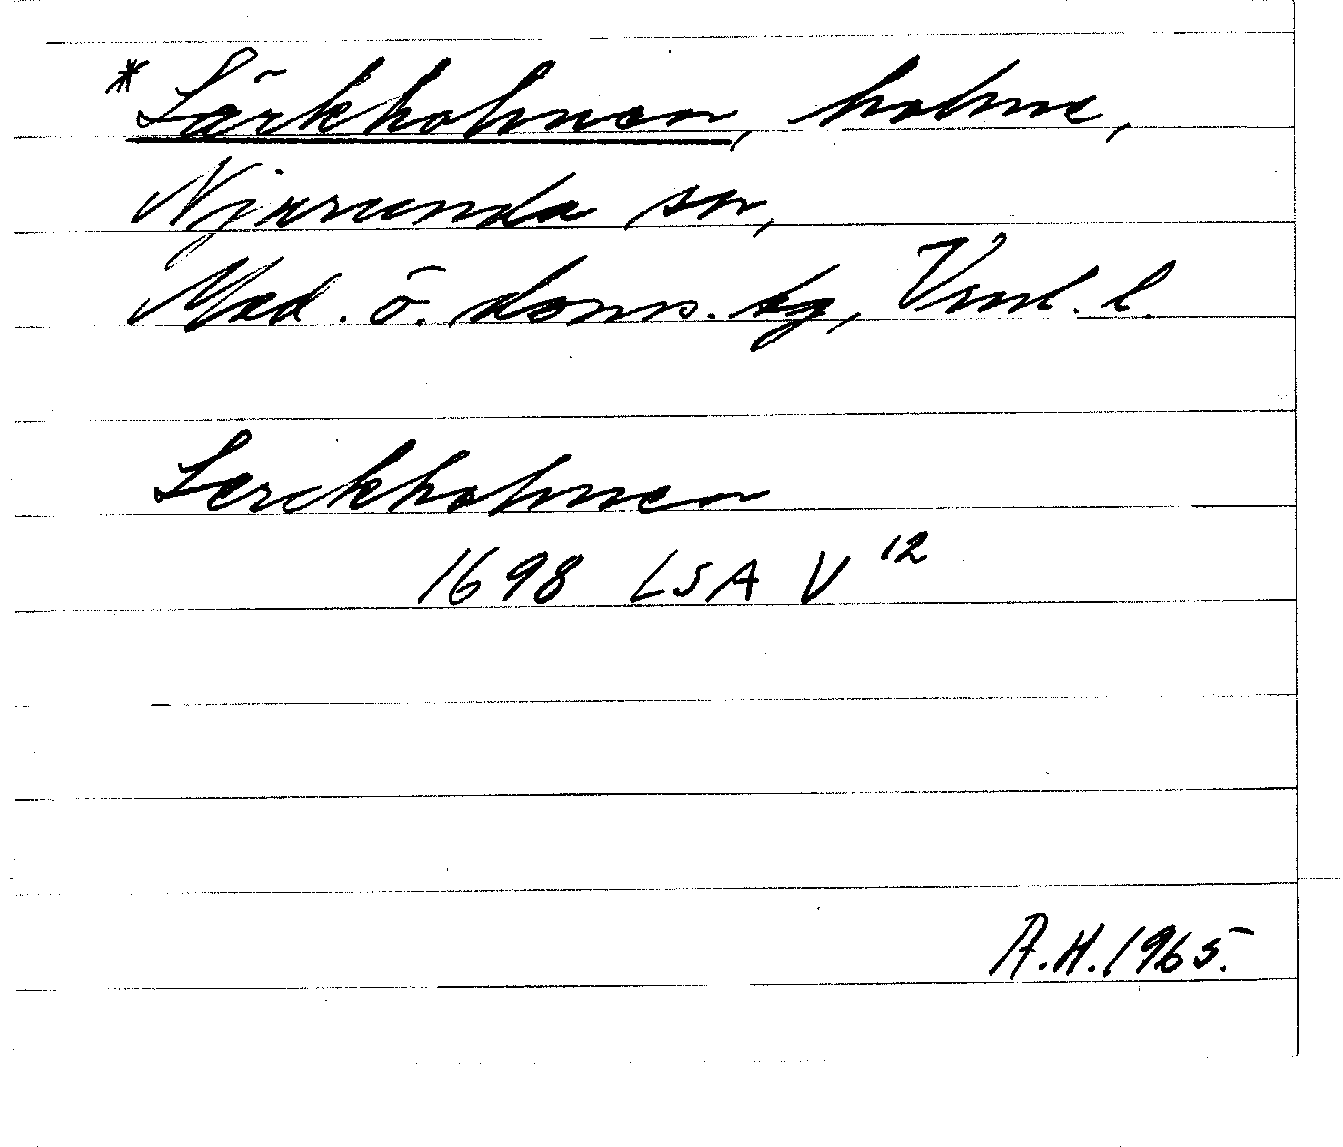 * Lärkholmen, holme,
Njurunda sn,
Med. ö. doms. tg, Vnrl. l.
Lerckholmen
1698 LSA V 12
A.H. 1965.